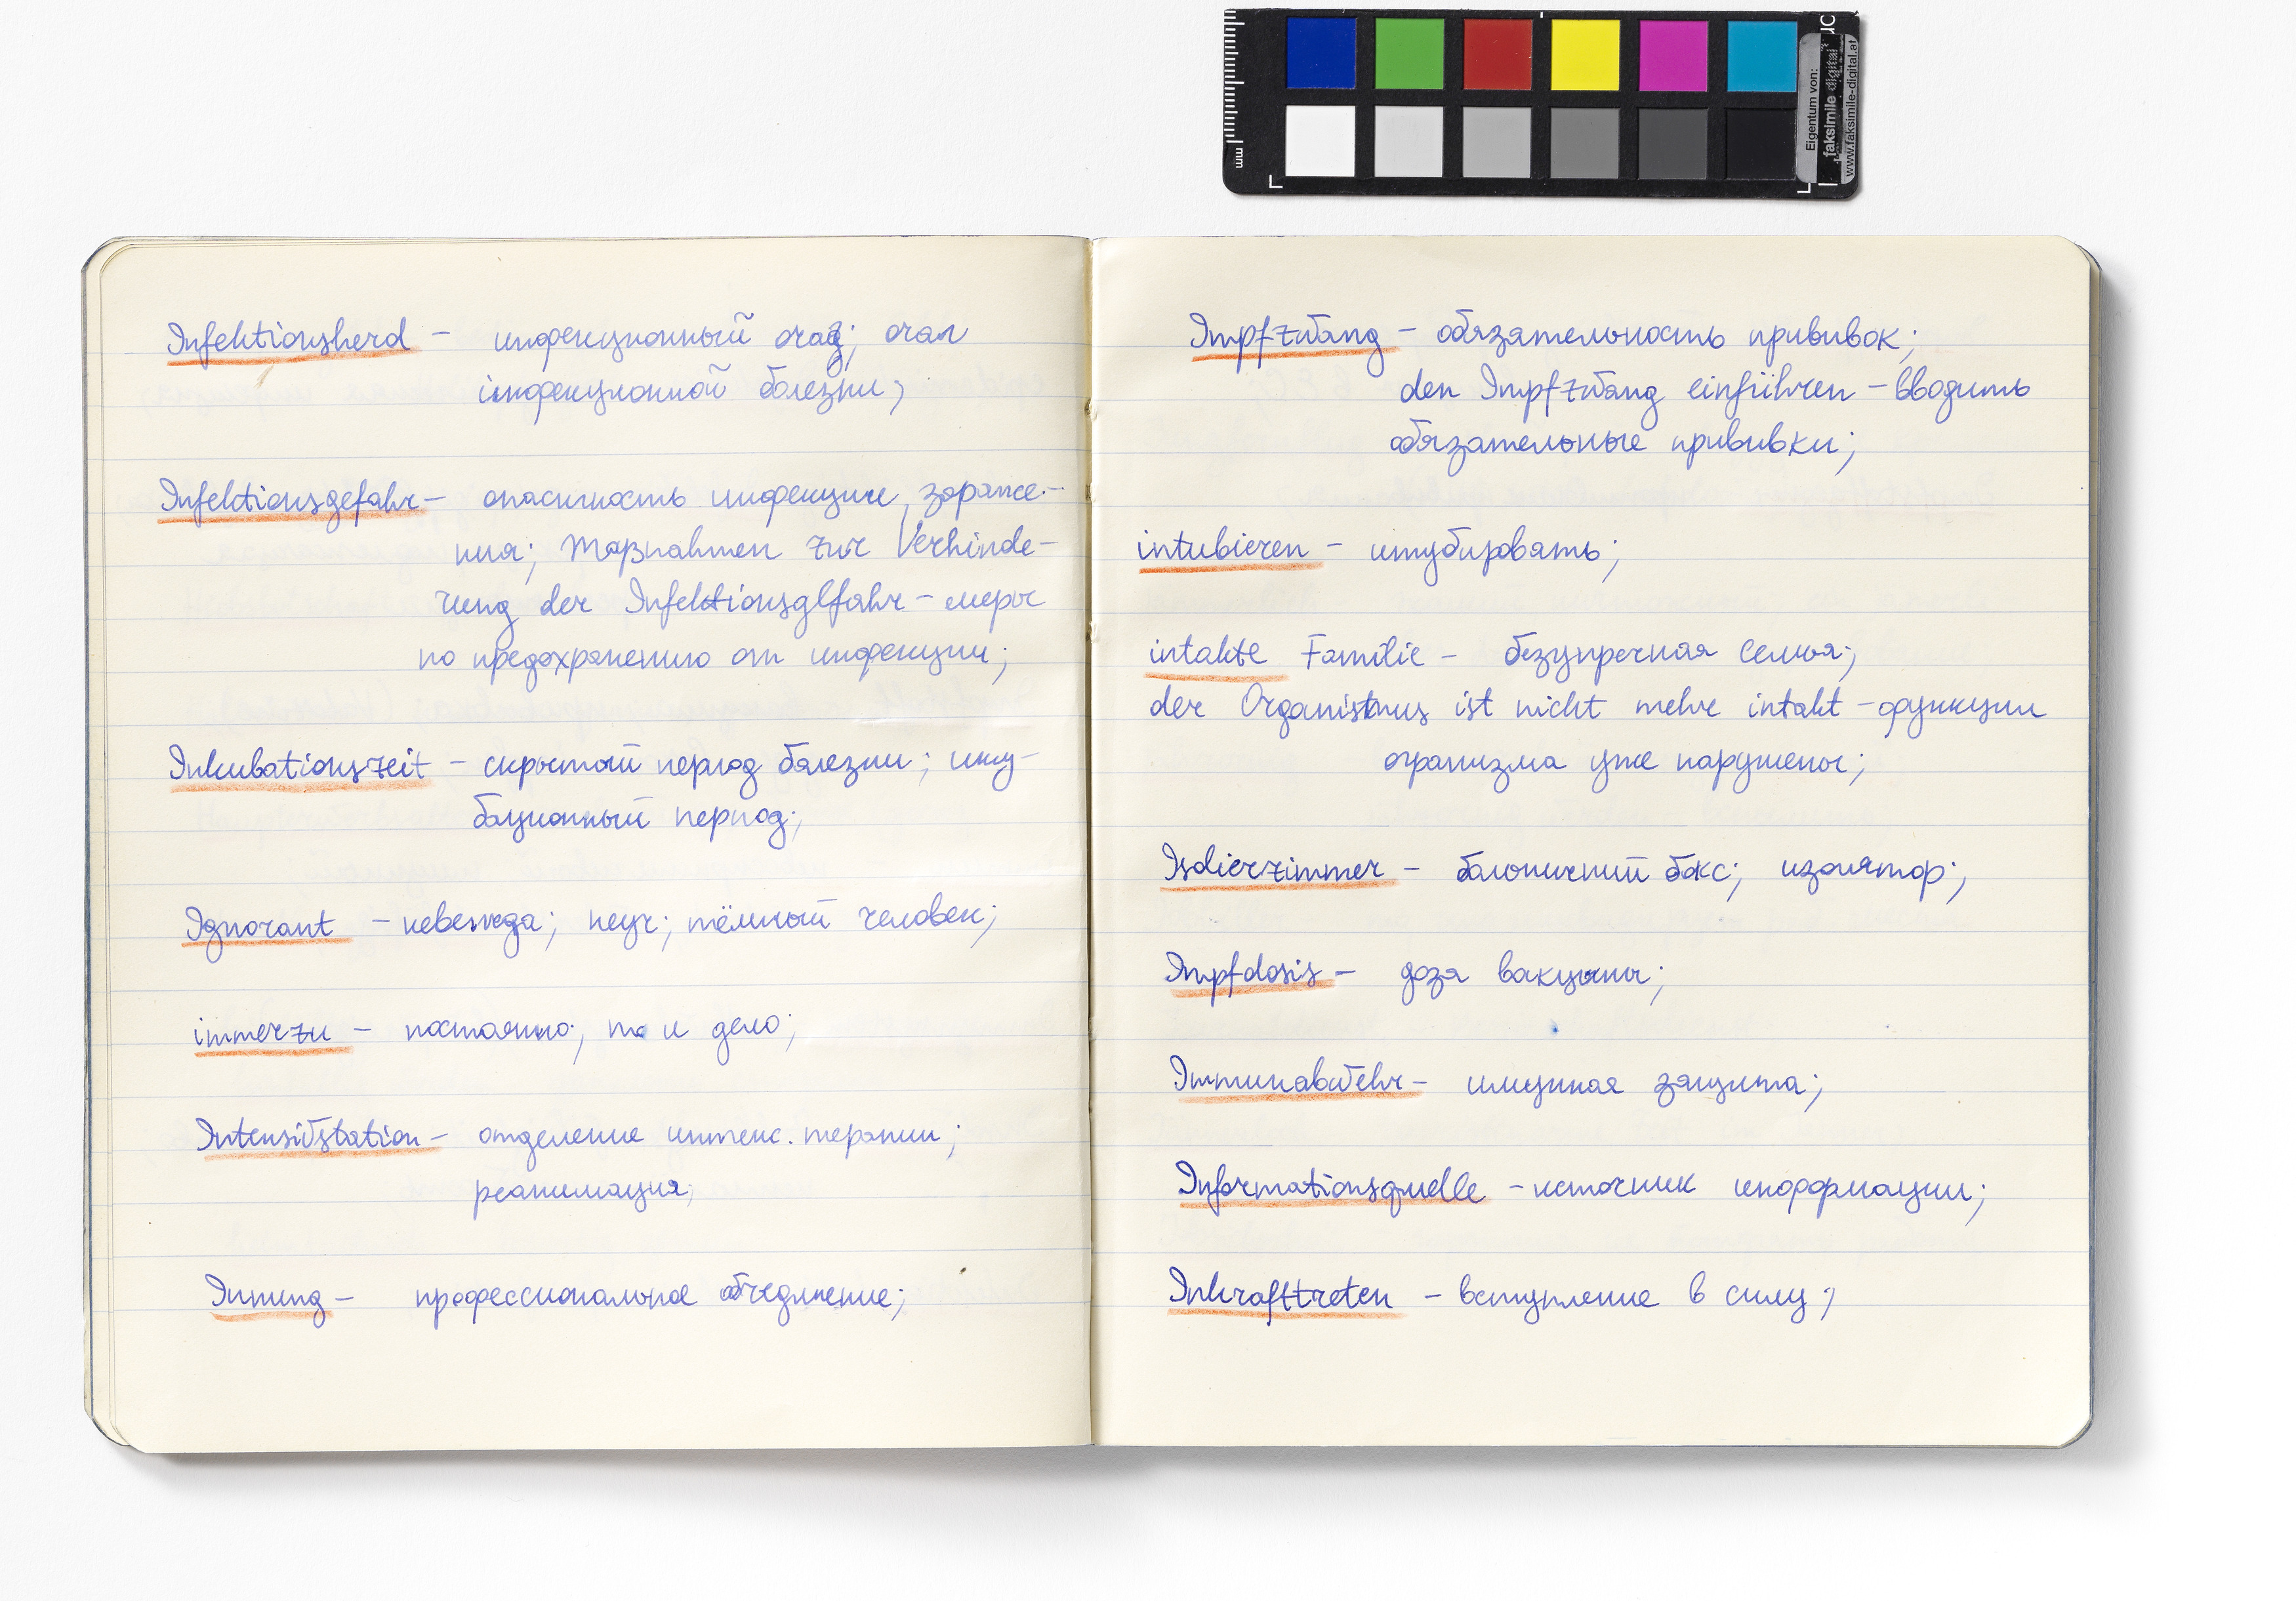 Infektionsherd – инфекционный очаг; очаг
инфекционной болезни;
Infektionsgefahr – опасность инфекции, зараже-
ния; Maßnahmen zur Verhinde-
rung der Infektionsgefahr – меры
по предохранению от инфекции;
Inkubationszeit – скрытый период болезни; инку-
бационный период;
Ignorant – невежда; неуч; тёмный человек;
immerzu – постоянно; то и дело;
Intensivstation – отделение интенс. терапии;
реанимация;
Innung – профессиональное объединение;
Impfzwang – обязательность прививок;
den Impfzwang einführen – вводить
обязательные прививки;
intubieren – интубировать;
intakte Familie – безупречная семья;
der Organismus ist nicht mehr intakt – функции
организма уже нарушены;
Isolierzimmer – больничный бокс; изолятор;
Impfdosis – доза вакцины;
Immunabwehr – имунная защита;
Informationsquelle – источник информации;
Inkrafttreten – вступление в силу;
mm
Eigentum von:
faksimile digital
www.faksimile-digital.at